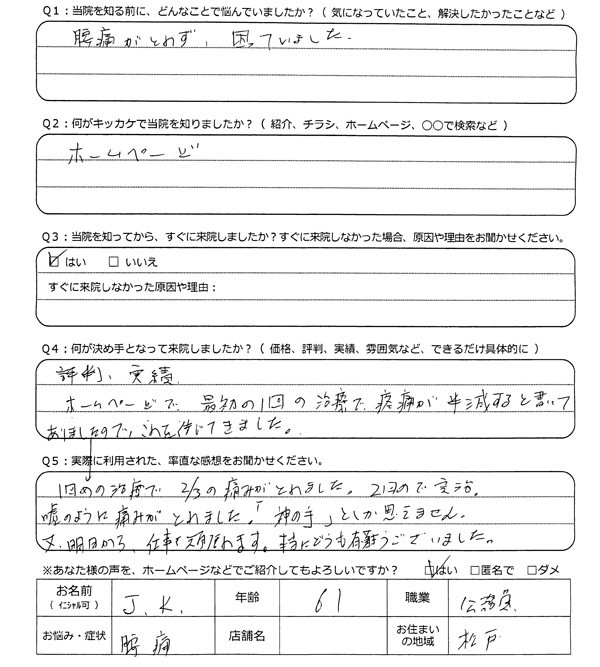 Q1：当院を知る前に、どんなことで悩んでいましたか？（ 気になっていたこと、解決したかったことなど ）
腰痛がとれず、困っていました。
Q2：何がキッカケで当院を知りましたか？（ 紹介、チラシ、ホームページ、〇〇で検索など ）
ホームページ
Q3：当院を知ってから、すぐに来院しましたか？すぐに来院しなかった場合、原因や理由をお聞かせください。
☑ はい　□ いいえ
すぐに来院しなかった原因や理由：
Q4：何が決め手となって来院しましたか？（ 価格、評判、実績、雰囲気など、できるだけ具体的に ）
評判、実績
ホームページで、最初の1回の治療で、疼痛が半減すると書いて
ありましたので、これを信じてきました。
Q5：実際に利用された、率直な感想をお聞かせください。
1回めの治療で 2/3の痛みがとれました。2回めで完治。
嘘のように痛みがとれました。「神の手」としか思えません。
又、明日から、仕事を頑張れます。本当にどうも有難うございました。
※あなた様の声を、ホームページなどでご紹介してもよろしいですか？ ☑はい □匿名で □ダメ
お名前（ ｲﾆｼｬﾙ可 ） J. K. 年齢 61 職業 公務員
お悩み・症状 腰痛 店舗名 お住まいの地域 松戸